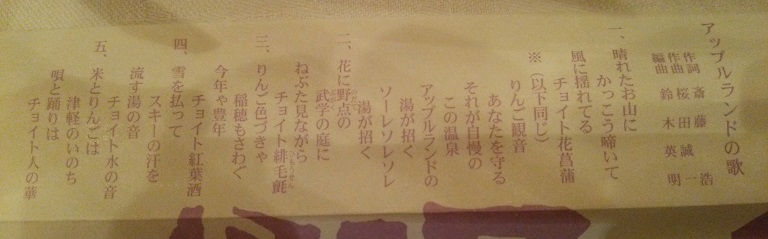 アップルランドの歌
作詞 斎藤 浩
作曲 桜田誠一
編曲 鈴木英明
一、晴れたお山に
かっこう啼いて
風に揺れてる
チョイト花菖蒲
※(以下同じ)
りんご観音
あなたを守る
それが自慢の
この温泉
アップルランドの
湯が招く
ソーレソレソレ
湯が招く
二、花に野点の
武学の庭に
ねぶた見ながら
チョイト緋毛氈
三、りんご色づきゃ
稲穂もさわぐ
今年ゃ豊年
チョイト紅葉酒
四、雪を払って
スキーの汗を
流す湯の音
チョイト水の音
五、米とりんごは
津軽のいのち
唄と踊りは
チョイト人の華